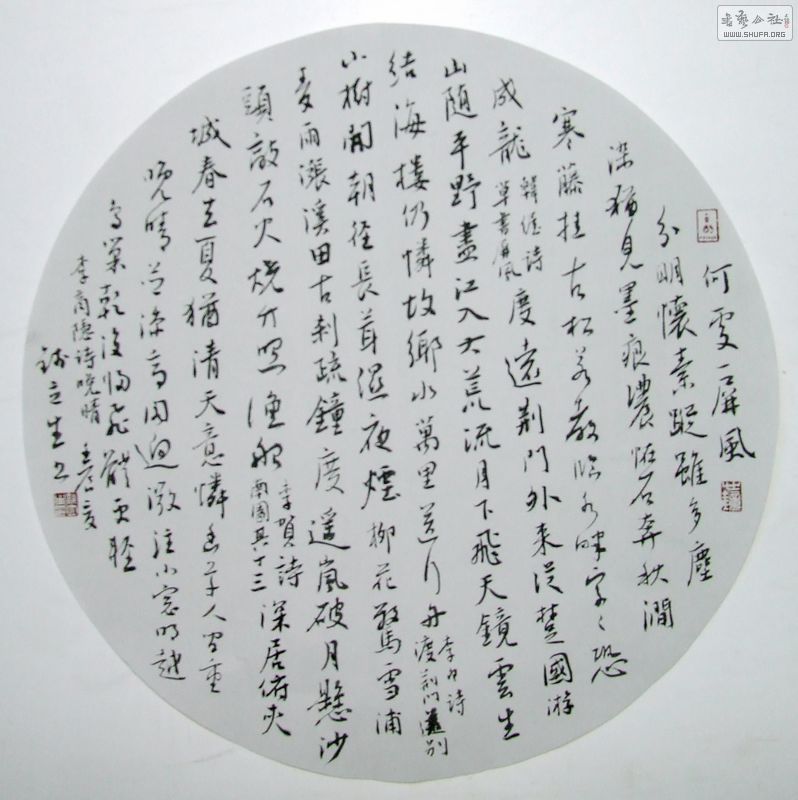 書藝公社
WWW.SHUFA.ORG
何處一屏風
分明懷素蹤雖多塵
染猶見墨痕濃怪石奔秋澗
寒藤挂古松若教臨水畔字々恐
成龍
韓偓诗
草書屏風
度遠荆門外来從楚國游
山随平野盡江入大荒流月下飛天鏡雲生
结海樓仍憐故鄉水萬里送行舟
李白诗
渡荆门送别
小樹開朝徑長茸濕夜煙柳花驚雪浦
麦雨漲溪田古刹疏鐘度遥嵐破月懸沙
頭敲石火燒竹照漁船
李賀詩
南園其十三
深居俯夾
城春去夏猶清天意憐幽草人間重
晚晴并添高阁迥微注小窗明越
鸟巢乾後歸飛體更輕
李商隐诗晚晴
立生书